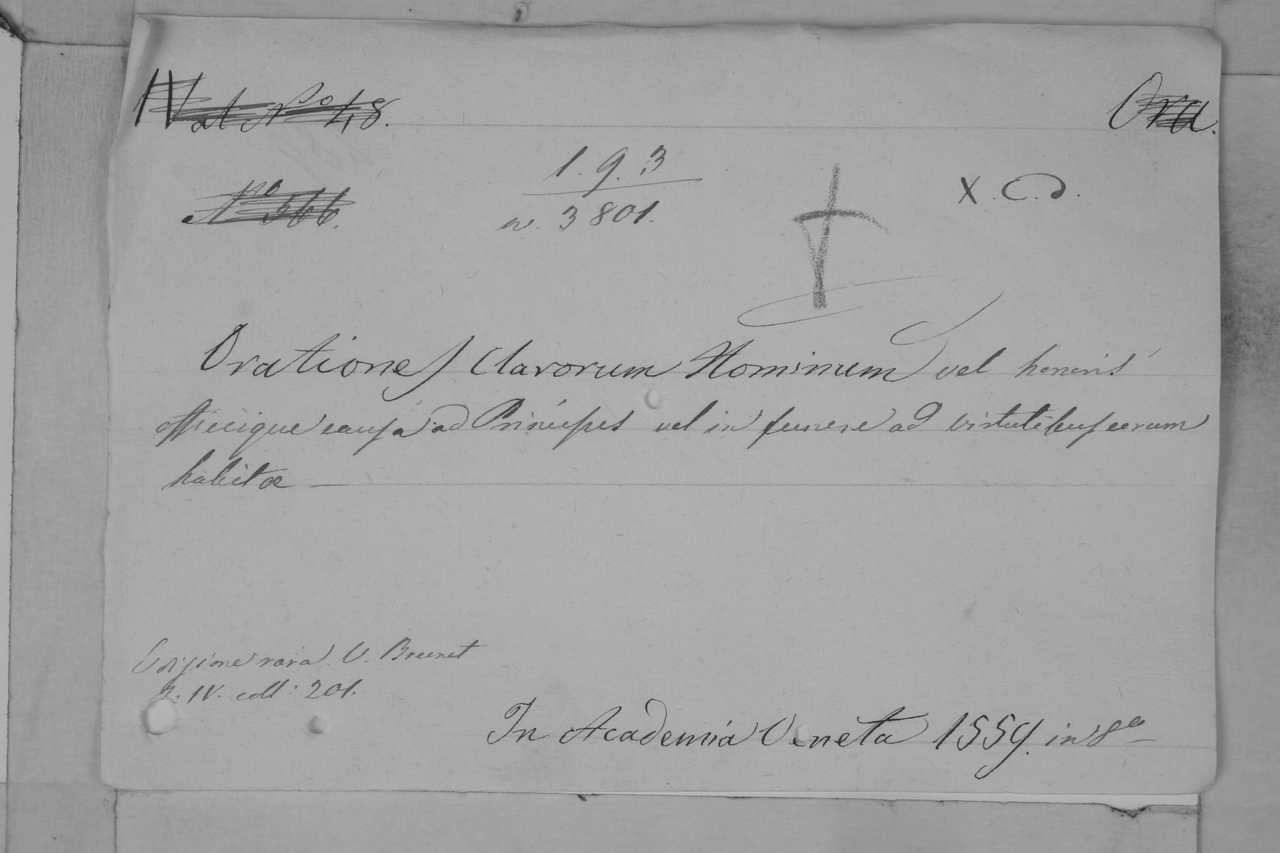 Nat Nº 48. Ora.
1.9.3 X.C.
Nº 566. n. 3801.
Orationes Clarorum Hominum vel honoris
officiique causa ad Principes vel in funere ad virtutibus eorum
habitæ —
Edizione rara V. Brunet
T. IV. coll: 201.
In Academia Veneta 1559. in 8º